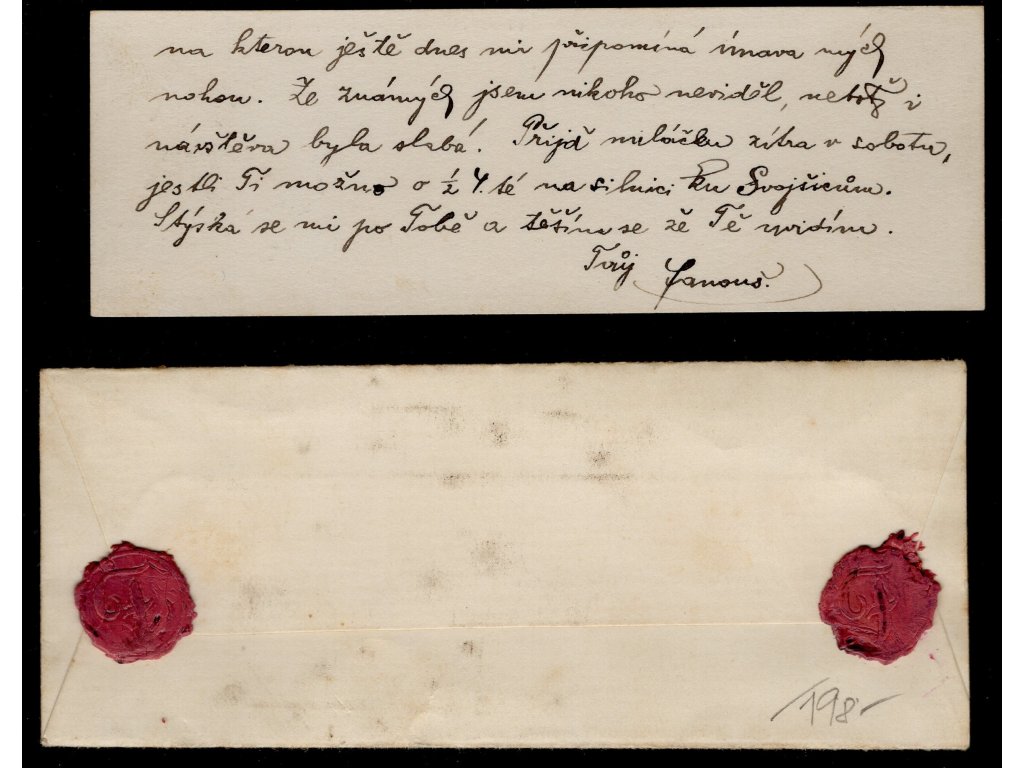 na kterou ještě dnes mi připomíná únava mých
nohou. Ze známých jsem nikoho neviděl, neboť i
návštěva byla slabá. Přijď miláčku zítra v sobotu,
jestli Ti možno o ½ 4. té na silnici ku Svojšicům.
Stýská se mi po Tobě a těším se že Tě uvidím.
Tvůj Fanouš.
198-